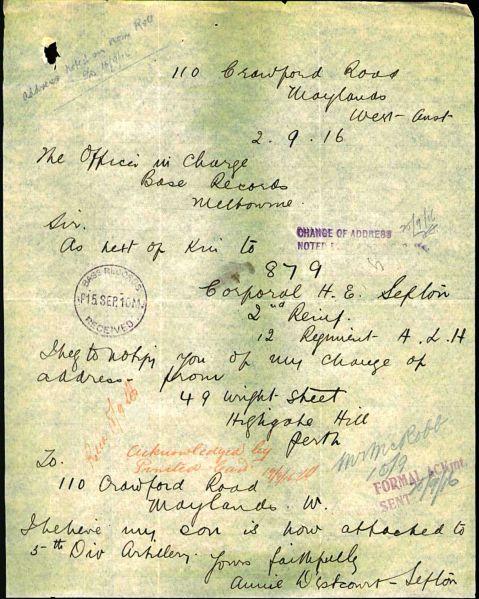 Address noted on Nom Roll
110 Crawford Road
Maylands
West-Aust
2.9.16
The Officer in Charge
Base Records
Melbourne.
Sir.
CHANGE OF ADDRESS
NOTED
As next of Kin to
879
BASE RECORDS
15 SEP. 10 AM
RECEIVED
Corporal H. E. Sefton
2nd Reinf.
12 Regiment A. L. H
I beg to notify you of my change of
address - from
49 Wright Street
Highgate Hill
Perth
Acknowledged by
Printed Card
Mr McRobb
15/9
FORMAL ACKMT.
SENT
To.
110 Crawford Road
Maylands. W.
I believe my son is now attached to
5th Div Artillery. Yours faithfully
Annie D'Estcourt-Sefton